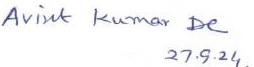 Avisek Kumar De
27.9.24.